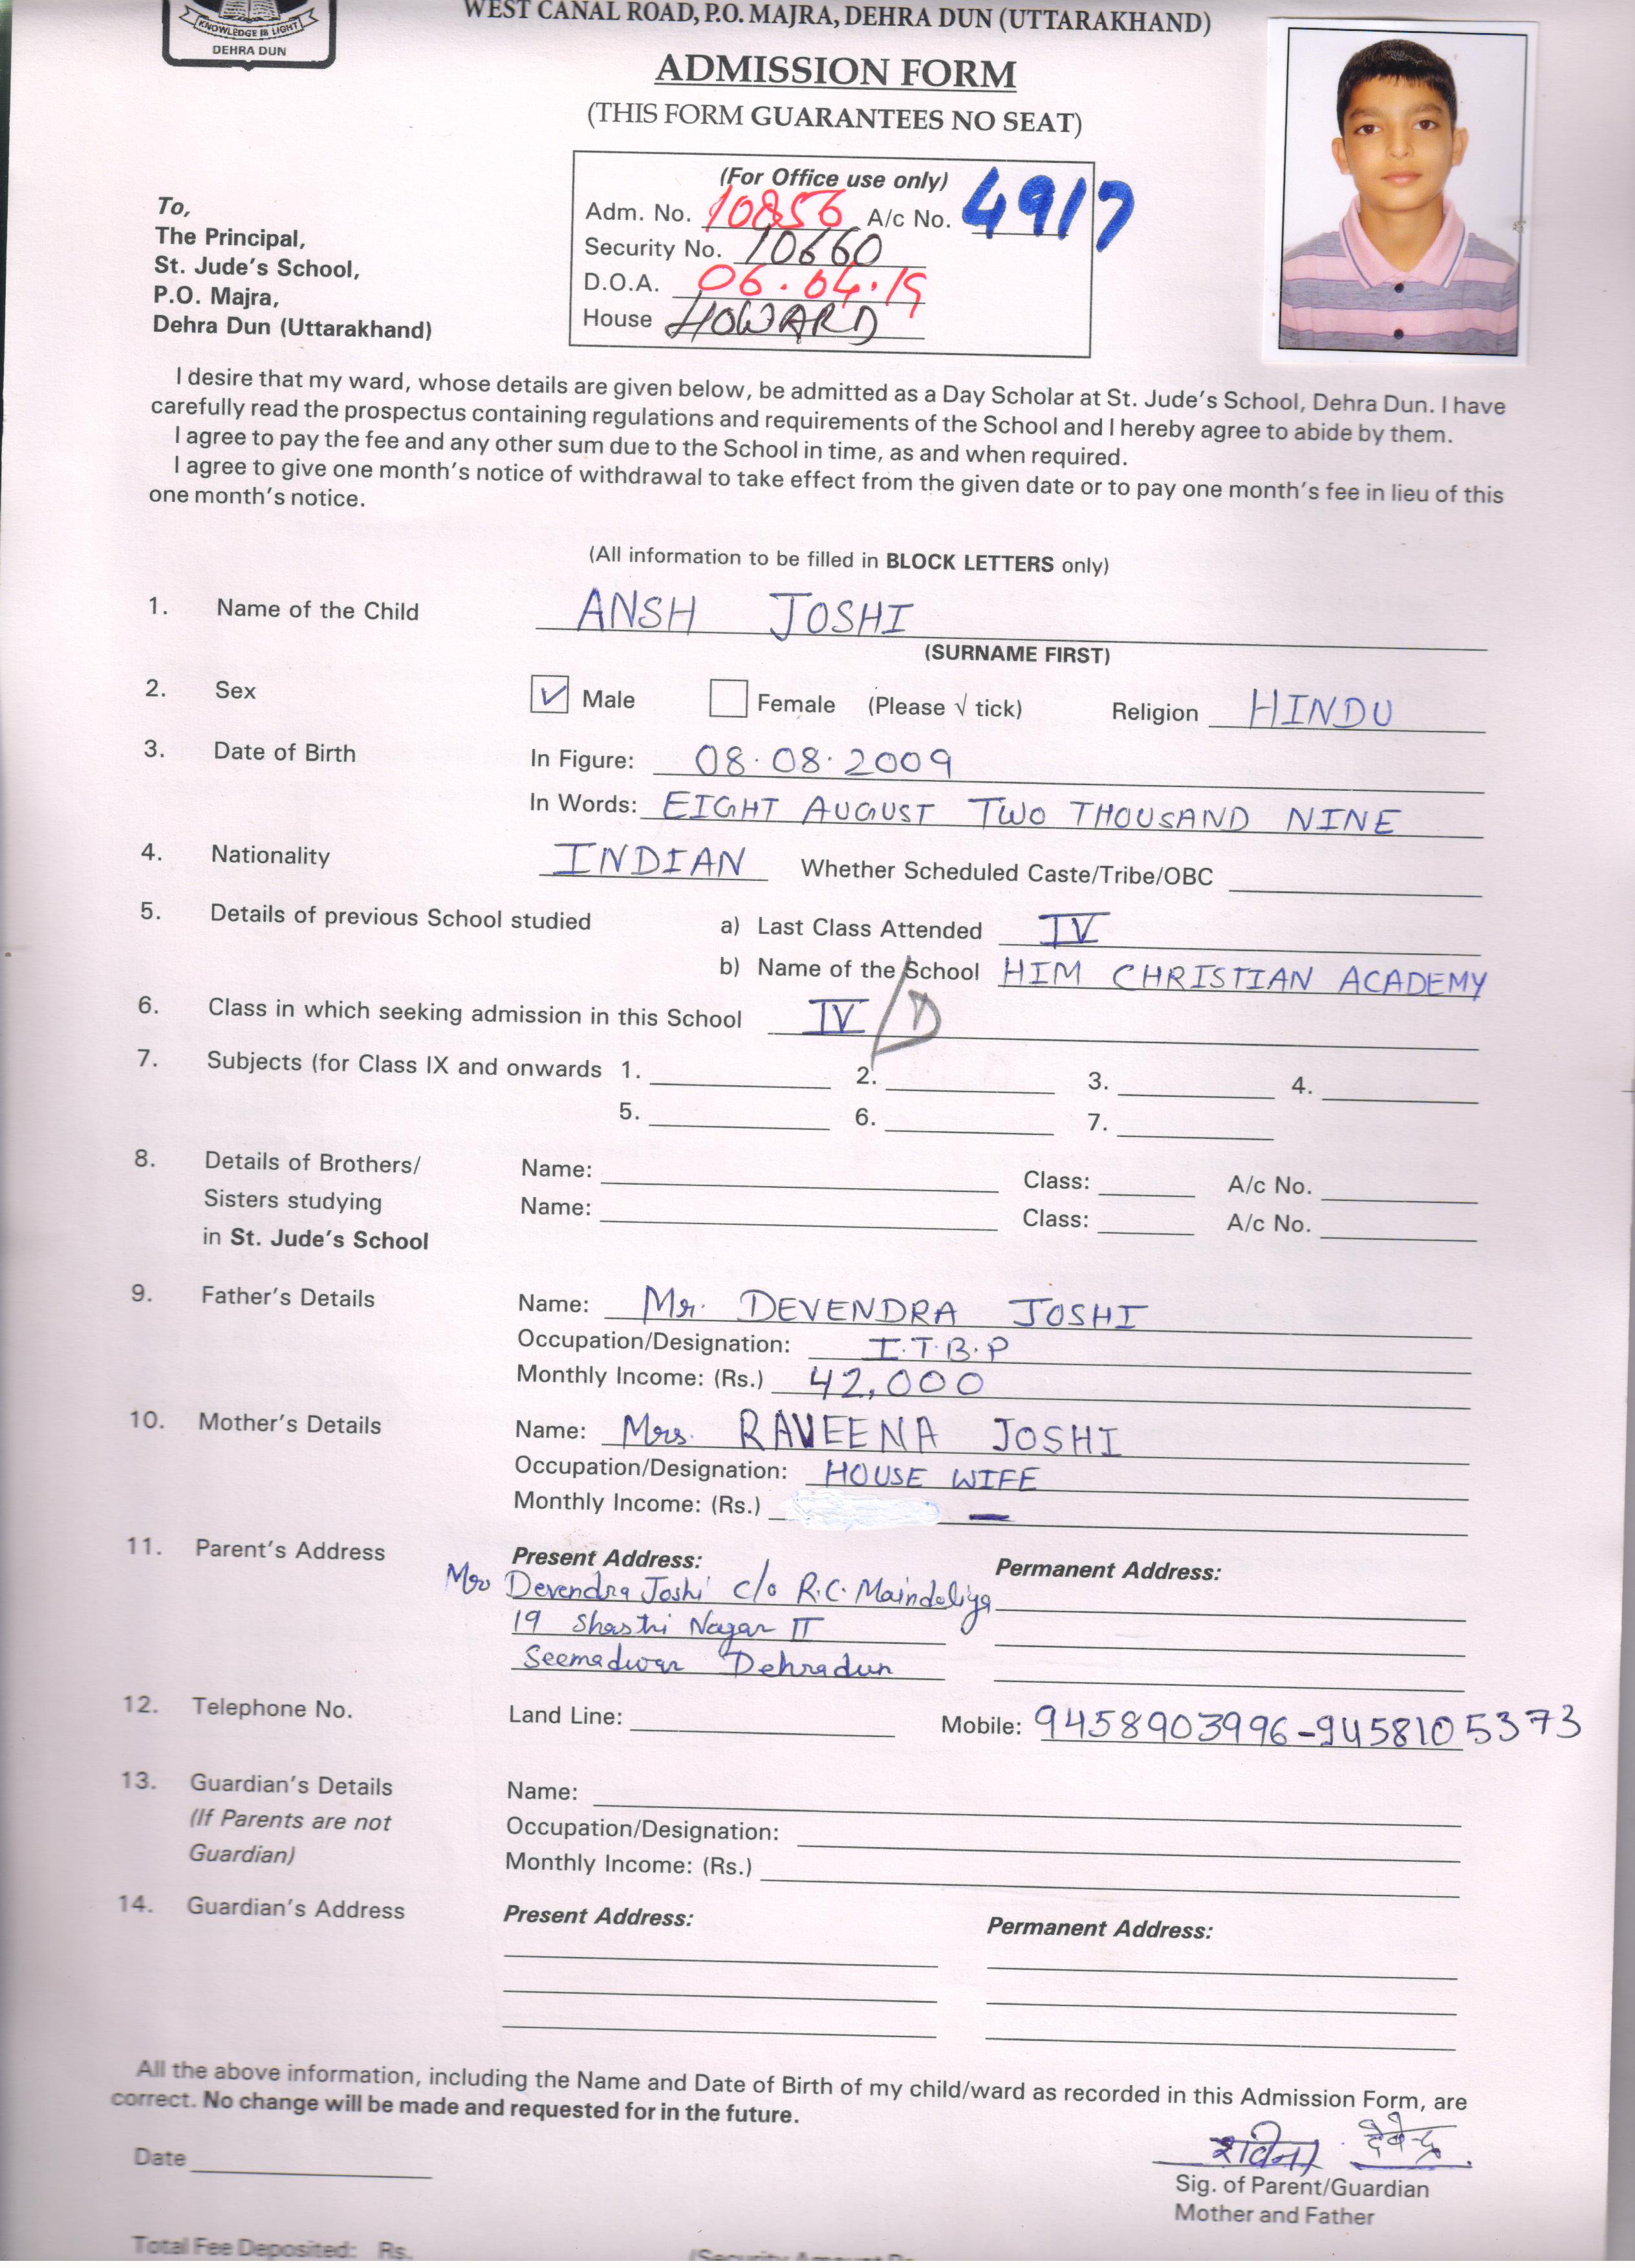 KNOWLEDGE IS LIGHT
DEHRA DUN
WEST CANAL ROAD, P.O. MAJRA, DEHRA DUN (UTTARAKHAND)
ADMISSION FORM
(THIS FORM GUARANTEES NO SEAT)
(For Office use only)
Adm. No. 10856 A/c No. 4917
Security No. 10660
D.O.A. 06.04.19
House HOWARD
To,
The Principal,
St. Jude's School,
P.O. Majra,
Dehra Dun (Uttarakhand)
I desire that my ward, whose details are given below, be admitted as a Day Scholar at St. Jude's School, Dehra Dun. I have
carefully read the prospectus containing regulations and requirements of the School and I hereby agree to abide by them.
I agree to pay the fee and any other sum due to the School in time, as and when required.
I agree to give one month's notice of withdrawal to take effect from the given date or to pay one month's fee in lieu of this
one month's notice.
(All information to be filled in BLOCK LETTERS only)
1. Name of the Child ANSH JOSHI
(SURNAME FIRST)
2. Sex ✓ Male Female (Please √ tick) Religion HINDU
3. Date of Birth In Figure: 08.08.2009
In Words: EIGHT AUGUST TWO THOUSAND NINE
4. Nationality INDIAN Whether Scheduled Caste/Tribe/OBC
5. Details of previous School studied a) Last Class Attended IV
b) Name of the School HIM CHRISTIAN ACADEMY
6. Class in which seeking admission in this School IV/D
7. Subjects (for Class IX and onwards 1. 2. 3. 4.
5. 6. 7.
8. Details of Brothers/ Name: Class: A/c No.
Sisters studying Name: Class: A/c No.
in St. Jude's School
9. Father's Details Name: Mr. DEVENDRA JOSHI
Occupation/Designation: I.T.B.P
Monthly Income: (Rs.) 42,000
10. Mother's Details Name: Mrs. RAVEENA JOSHI
Occupation/Designation: HOUSE WIFE
Monthly Income: (Rs.) —
11. Parent's Address Present Address: Permanent Address:
Devendra Joshi c/o R.C. Maindoliya
19 Shastri Nagar II
Seemadwar Dehradun
12. Telephone No. Land Line: Mobile: 9458903996-9458105373
13. Guardian's Details Name:
(If Parents are not Occupation/Designation:
Guardian) Monthly Income: (Rs.)
14. Guardian's Address Present Address: Permanent Address:
All the above information, including the Name and Date of Birth of my child/ward as recorded in this Admission Form, are
correct. No change will be made and requested for in the future.
देवेन्द्र
Date
Sig. of Parent/Guardian
Mother and Father
Total Fee Deposited: Rs.